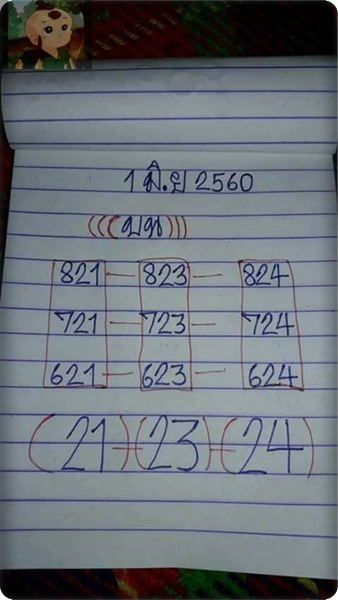 1 มิ.ย 2560
(((บน)))
821 — 823 — 824
721 — 723 — 724
621 — 623 — 624
(21)-(23)-(24)